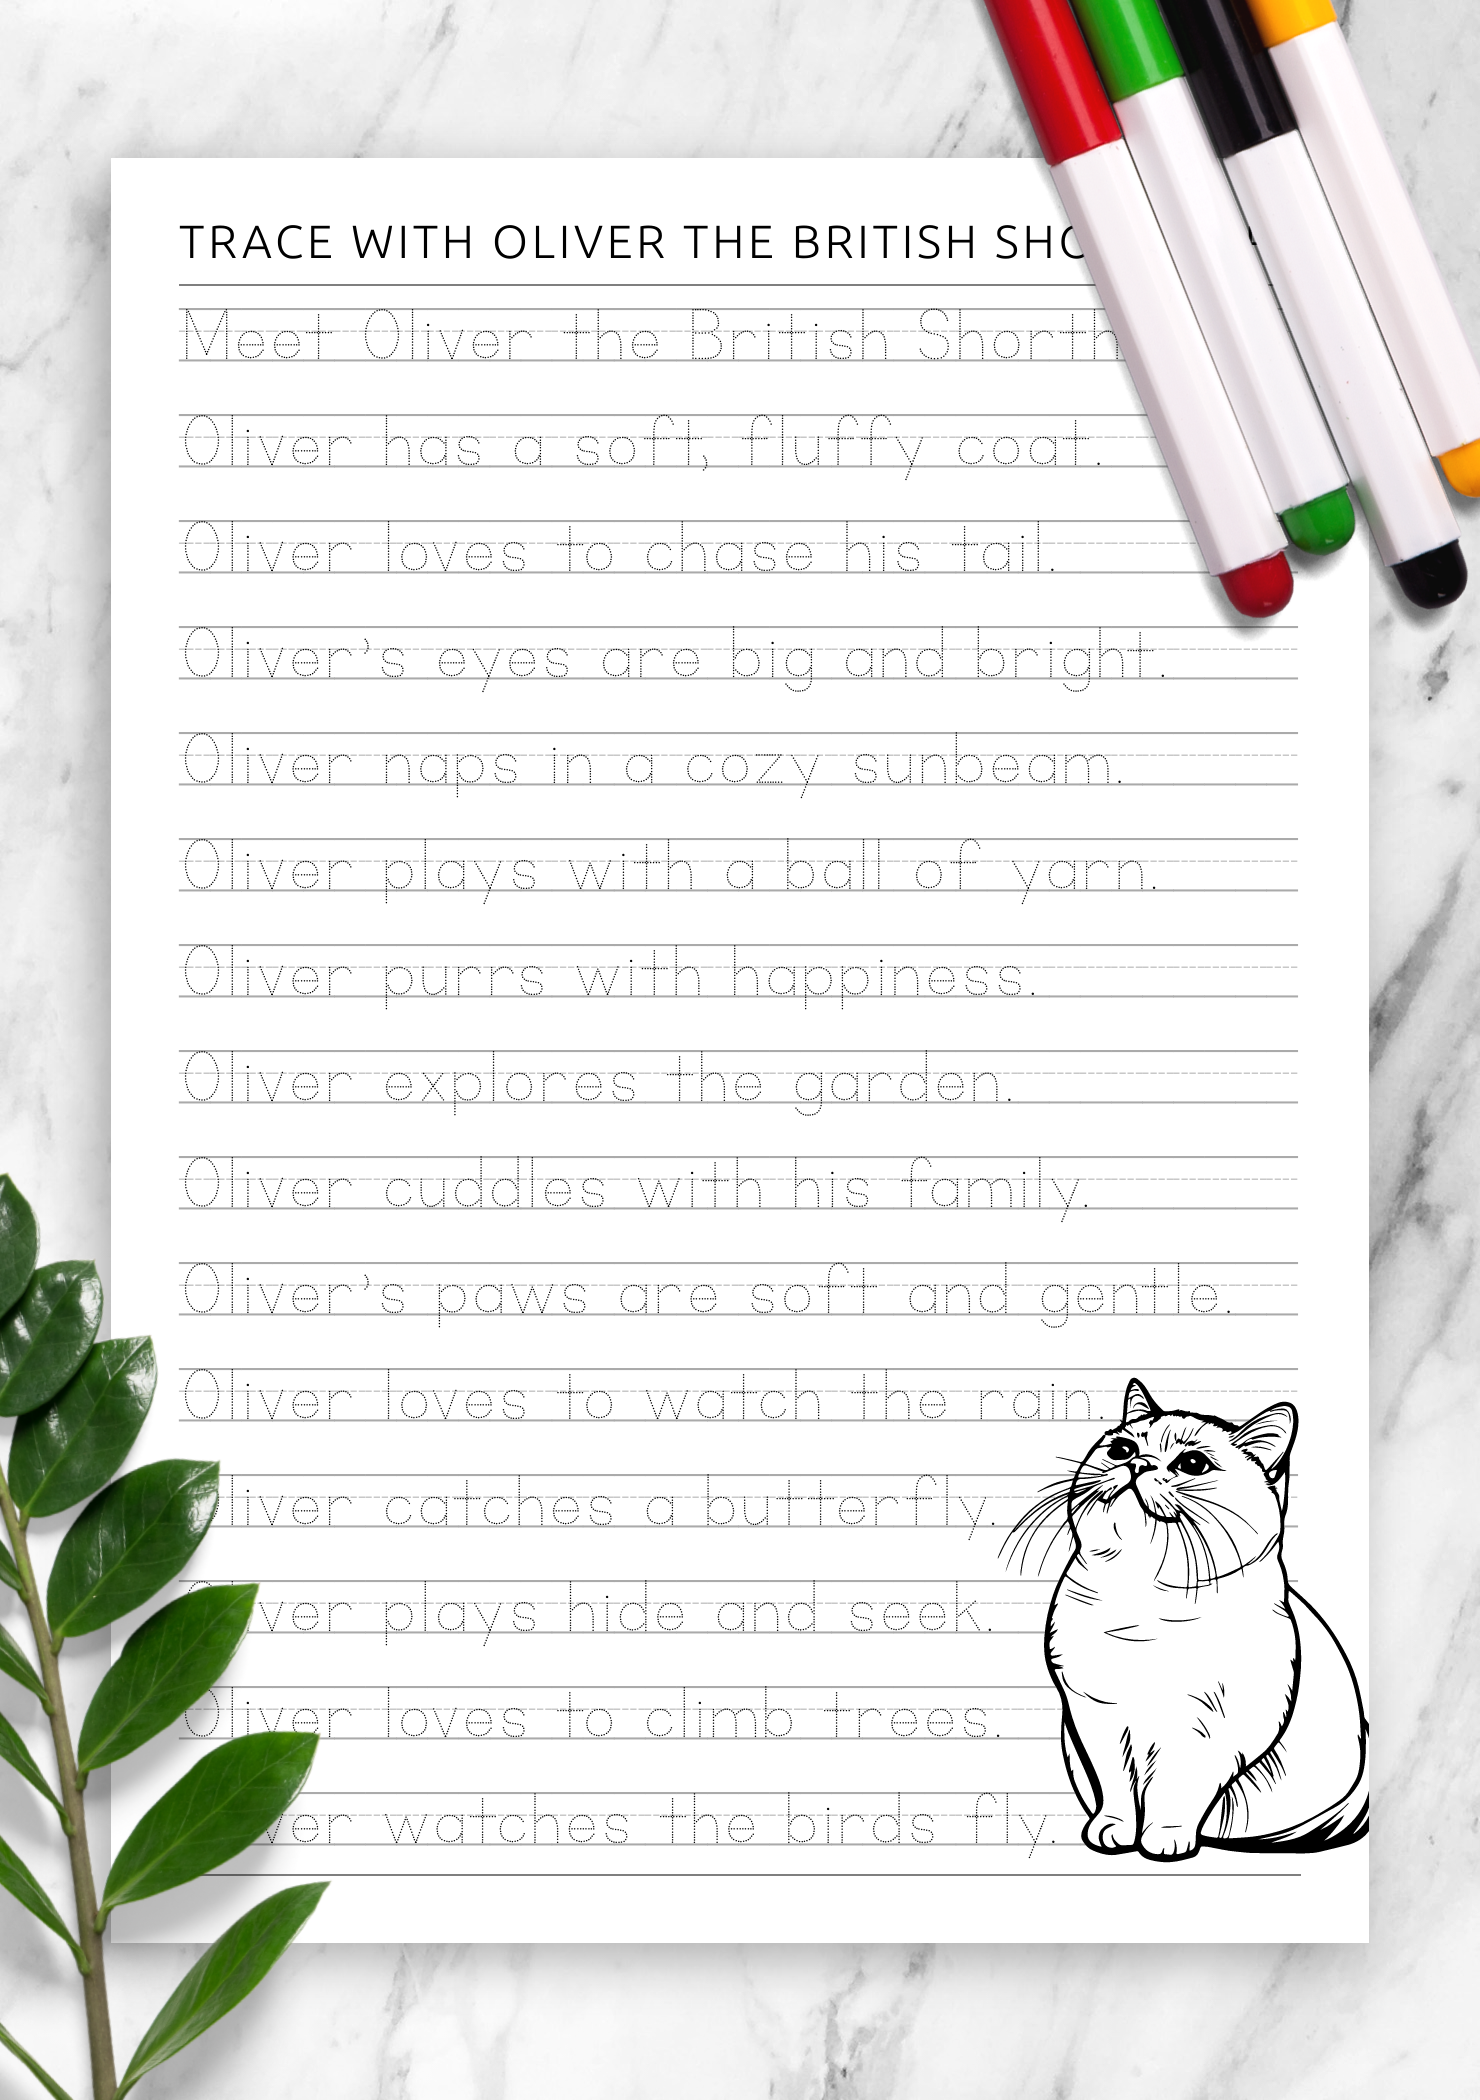 TRACE WITH OLIVER THE BRITISH SHO
Meet Oliver the British Shorth
Oliver has a soft, fluffy coat.
Oliver loves to chase his tail.
Oliver's eyes are big and bright.
Oliver naps in a cozy sunbeam.
Oliver plays with a ball of yarn.
Oliver purrs with happiness.
Oliver explores the garden.
Oliver cuddles with his family.
Oliver's paws are soft and gentle.
Oliver loves to watch the rain.
liver catches a butterfly.
Oliver plays hide and seek.
Oliver loves to climb trees.
ver watches the birds fly.